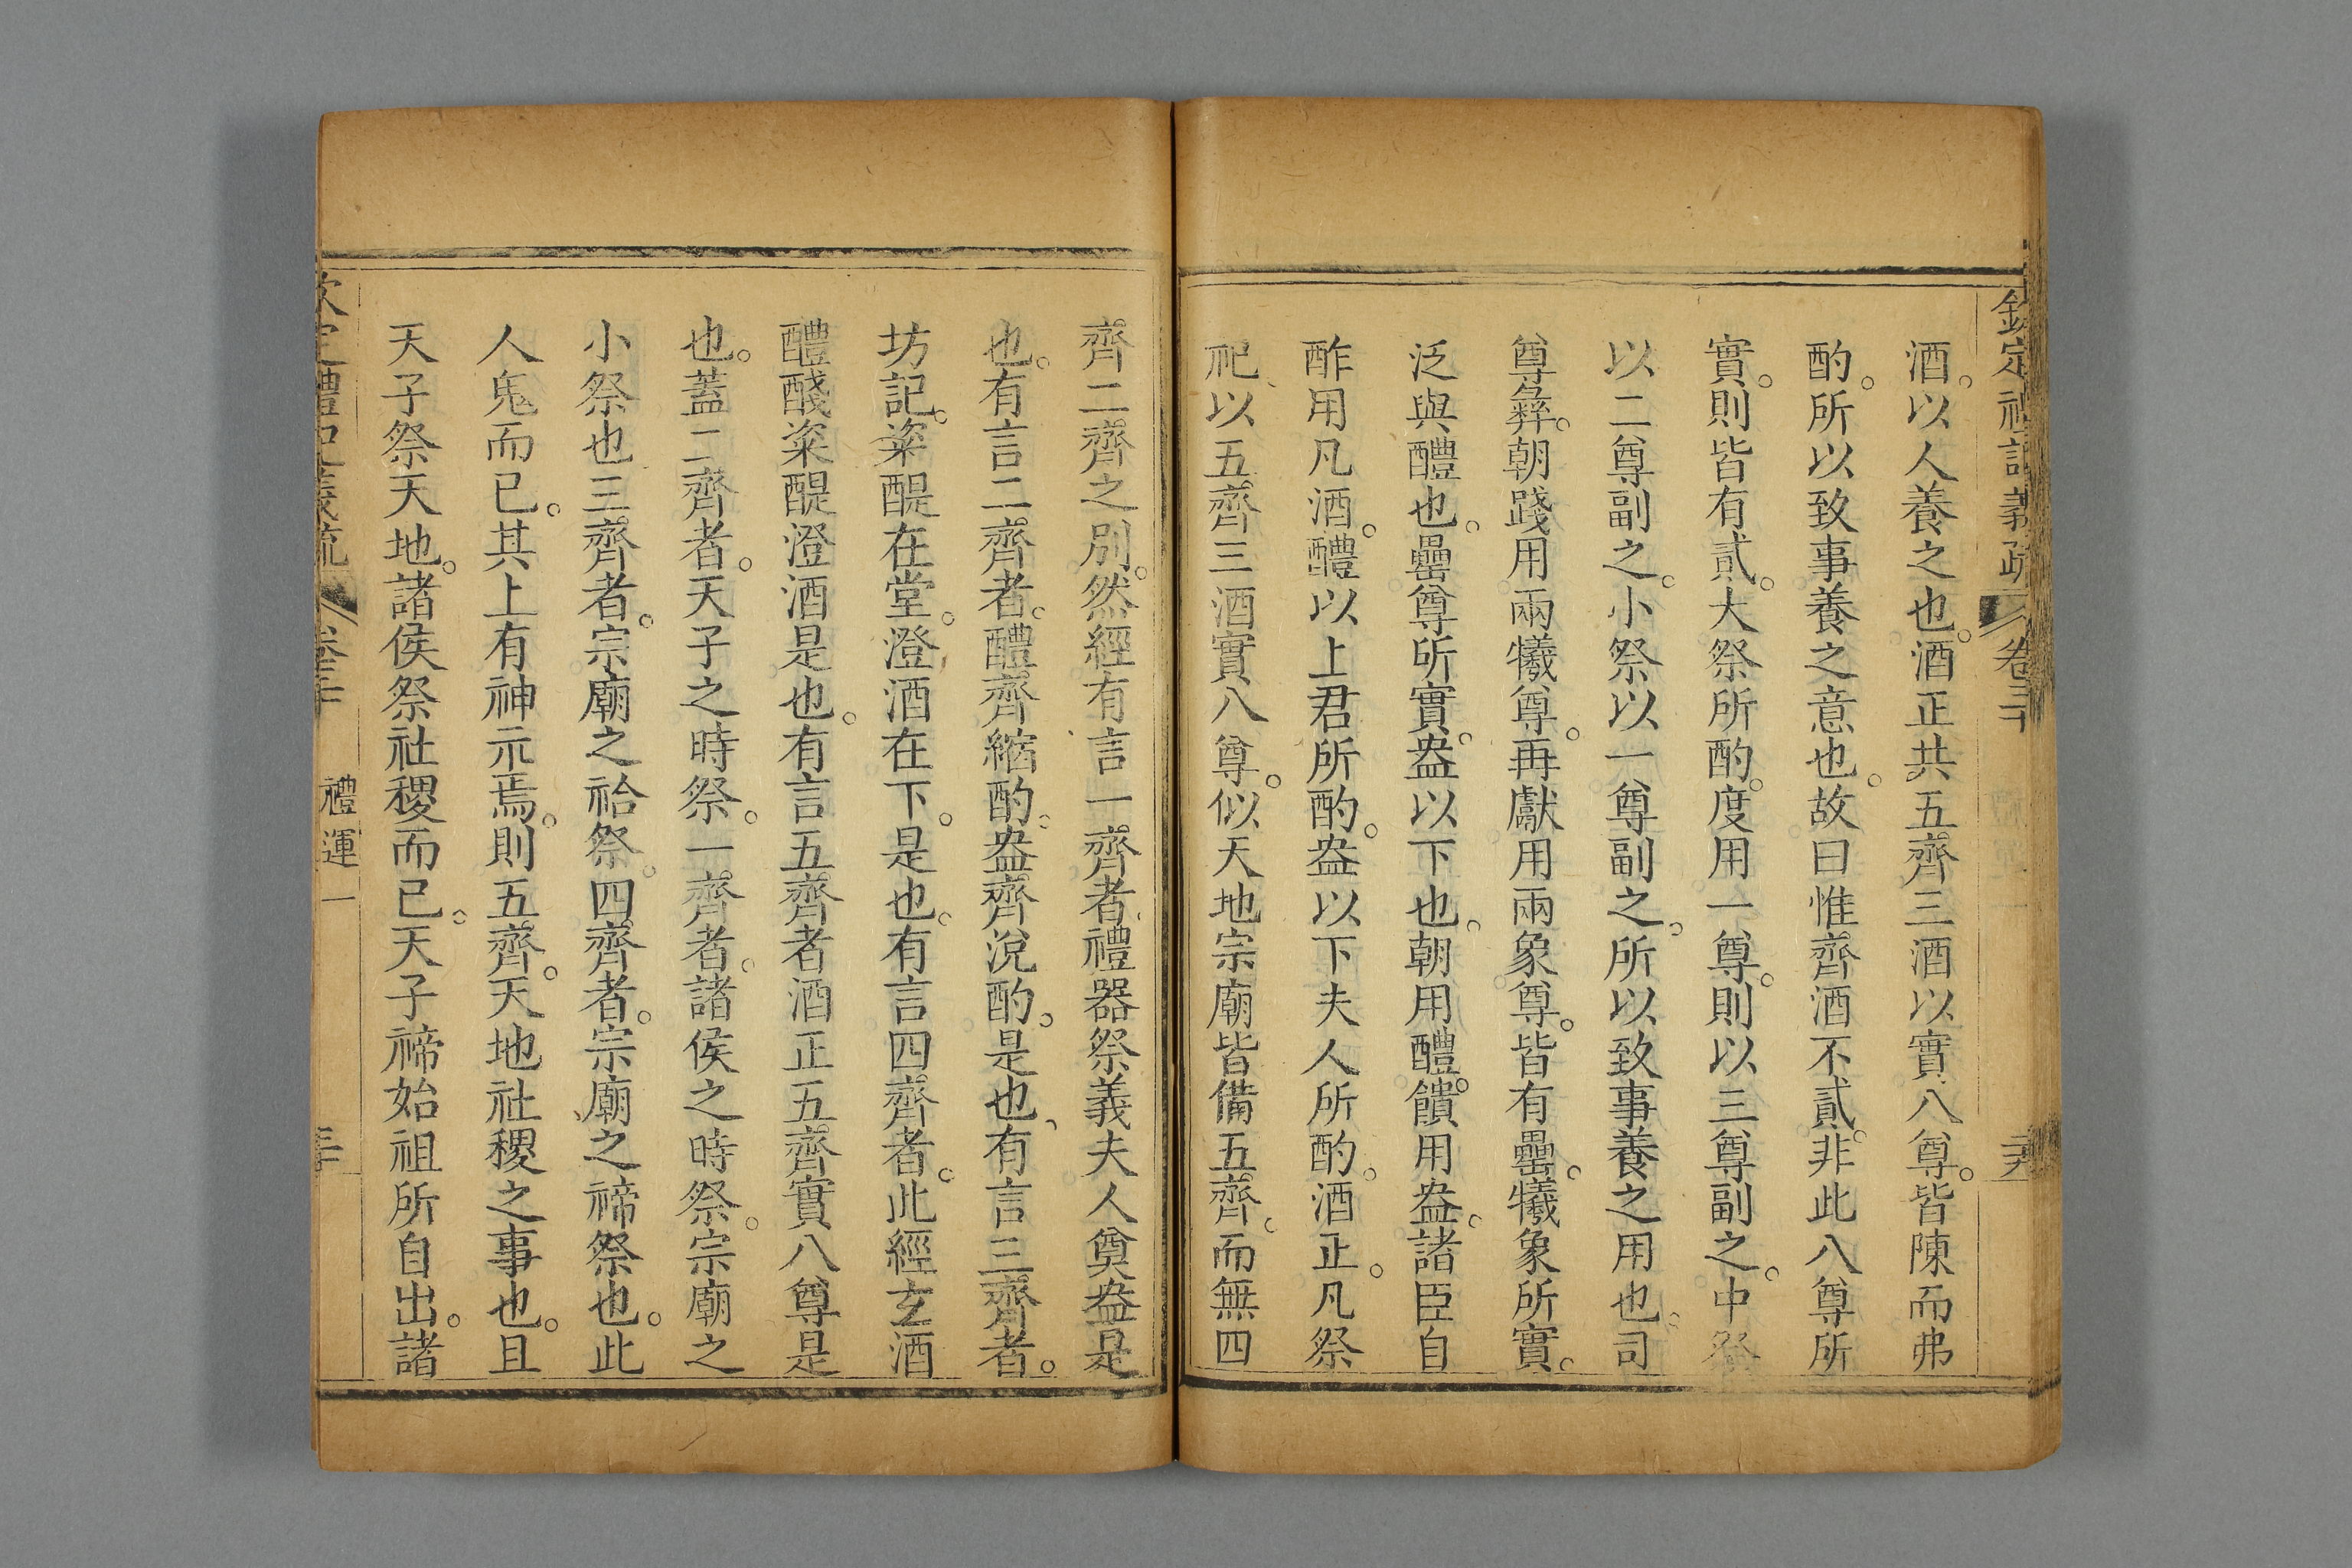 欽定禮記義疏 卷三十 二十九
酒。以人養之也。酒正共五齊三酒以實八尊。皆陳而弗
酌。所以致事養之意也。故曰惟齊酒不貳。非此八尊所
實。則皆有貳。大祭所酌。度用一尊。則以三尊副之。中祭
以二尊副之。小祭以一尊副之。所以致事養之用也。司
尊彝。朝踐用兩犧尊。再獻用兩象尊。皆有罍。犧象所實。
泛與醴也。罍尊所實。盎以下也。朝用醴。饋用盎。諸臣自
酢用凡酒。醴以上君所酌。盎以下夫人所酌。酒正。凡祭
祀、以五齊三酒實八尊。似天地宗廟皆備五齊。而無四
齊二齊之別。然經有言一齊者、禮器祭義夫人奠盎是
也。有言二齊者。醴齊縮酌。盎齊涗酌。是也、有言三齊者。
坊記。粢醍在堂。澄酒在下。是也。有言四齊者。此經玄酒
醴醆粢醍澄酒是也。有言五齊者酒正五齊實八尊是
也。蓋二齊者。天子之時祭。一齊者。諸侯之時祭。宗廟之
小祭也三齊者。宗廟之祫祭。四齊者。宗廟之禘祭也。此
人鬼而已。其上有神示焉。則五齊。天地社稷之事也。且
天子祭天地。諸侯祭社稷而已。天子禘始祖所自出。諸
欽定禮記義疏 卷三十 禮運一 三十